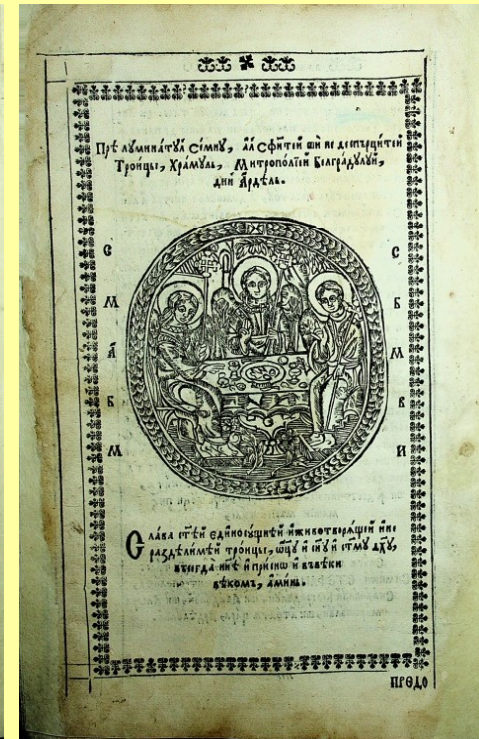 Прѣ луминатꙋл сeмнꙋ, ал Сфи́тей ши не деспърци́тей
Троице, Храмꙋль, Митропо́лїей Белградꙋлꙋй,
дин А҆рдѣль.
С С
М Б
А М
Б В
М И
Сла́ва ст҃ѣй є҆диносꙋщнѣй и҆ животворѧ́щей и҆ не
раздѣли́мѣй троицы, ѡ҆ц҃ꙋ и҆ сн҃ꙋ и҆ ст҃мꙋ дх҃ꙋ,
всегда и҆ нн҃ѣ и҆ присно и҆ въ вѣки
вѣкомъ, а҆ми́нь.
ПРЕДО